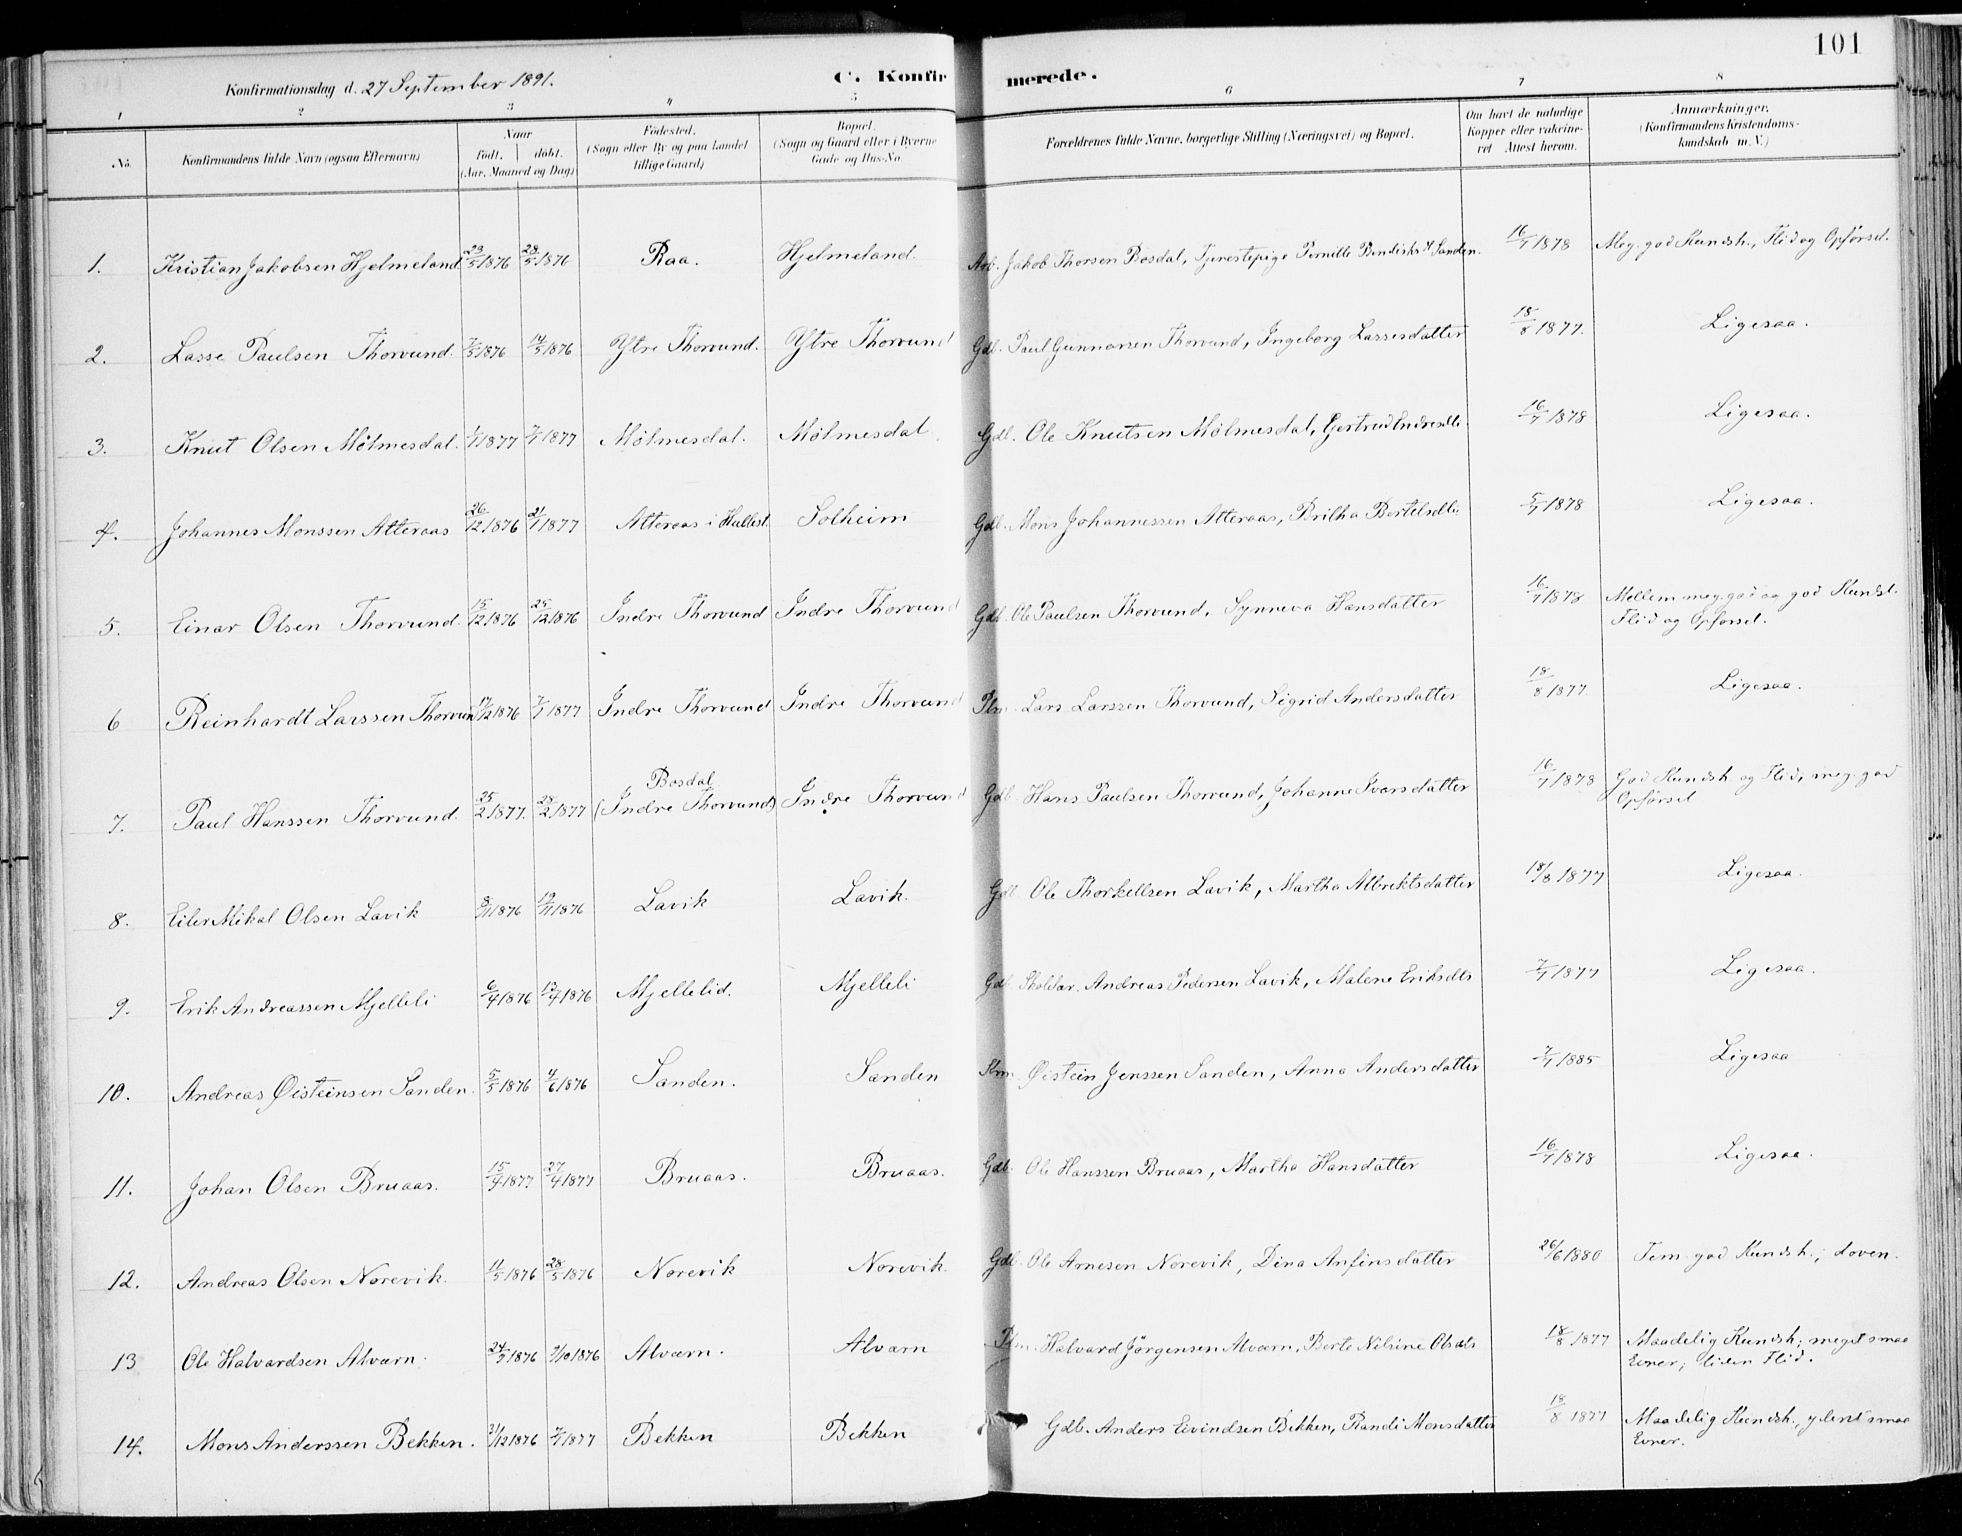 101
Konfirmationsdag d. 27 September 1891. C. Konfirmerede.
1 2 3 4 5 6 7 8
No. Konfirmandens fulde Navn (ogsaa Efternavn) Naar født. døbt. (Aar, Maaned og Dag) Fødested. (Sogn eller By og paa Landet tillige Gaard) Bopæl. (Sogn og Gaard eller i Byerne Gade og Hus-No. Forældrenes fulde Navne, borgerlige Stilling (Næringsvei) og Bopæl. Om havt de naturlige Kopper eller vakcineret Attest herom. Anmærkninger. (Konfirmandens Kristendomskundskab m. V.)
1. Kristian Jakobsen Hjelmeland 23/5 1876 28/5 1876 Raa. Hjelmeland. Arb. Jakob Thorsen Bosdal, Tjenestepige Pernille Bendiksdt Sanden. 16/7 1878 Meg. god Kundsk., Flid og Opførsel.
2. Lasse Paulsen Thorvund. 7/5 1876 14/5 1876 Ytre Thorvund. Ytre Thorvund Gdb. Paul Gunnarsen Thorvund, Ingeborg Lassesdatter 18/8 1877. Ligesaa.
3. Knut Olsen Mølmesdal. 1/1 1877 7/1 1877 Mølmesdal. Mølmesdal. Gdb. Ole Knutsen Mølmesdal, Gertrud Endresdtr 16/7 1878 Ligesaa.
4. Johannes Monssen Atteraas 26/12 1876 21/1 1877 Atteraas i Hallest. Solheim Gdb. Mons Johannessen Atteraas, Britha Bertelsdtr 5/7 1878 Ligesaa.
5. Einar Olsen Thorvund. 15/12 1876 25/12 1876 Indre Thorvund Indre Thorvund Gdb. Ole Paulsen Thorvund, Synneva Hansdatter 16/7 1878 Mellem meg. god og god Kundsk. Flid og Opførsel.
6 Reinhardt Larssen Thorvund 17/12 1876 7/1 1877 Indre Thorvund Indre Thorvund Plm. Lars Larssen Thorvund, Sigrid Andersdatter 18/8 1877. Ligesaa.
7. Paul Hanssen Thorvund. 25/2 1877. 28/2 1877 Bosdal (Indre Thorvund) Indre Thorvund Gdb. Hans Paulsen Thorvund, Johanne Ivarsdatter 16/7 1878 God Kundsk og Flid, meg. god Opførsel
8. Eiler Mikal Olsen Lavik 8/11 1876 19/11 1876 Lavik Lavik. Gdb. Ole Thorkellsen Lavik, Martha Albrektsdatter 18/8 1877 Ligesaa.
9. Erik Andreassen Mjelleli 6/4 1876 13/4 1876 Mjellelid. Mjelleli Gdb. Skoldar. Andreas Pedersen Lavik, Malene Eriksdtr 7/7 1877 Ligesaa.
10. Andreas Øisteinsen Sanden. 5/5 1876 4/6 1876 Sanden. Sanden Øistein Jenssen Sanden, Anna Andersdatter 7/7 1885 Ligesaa
11. Johan Olsen Bruaas. 15/4 1877 27/4 1877 Bruaas. Bruaas. Gdb. Ole Hanssen Bruaas, Martha Hansdatter 16/7 1878 Ligesaa.
12. Andreas Olsen Norevik. 11/5 1876 28/5 1876 Norevik Norevik. Gdb. Ole Arnesen Norevik, Dina Anfinsdatter 26/6 1880 Tem. god Kundsk.; doven.
13 Ole Halvardsen Alværn. 24/9 1876 1/10 1876 Alværn. Alværn Plm. Halvard Jørgensen Alværn, Berte Nilsine Olsdtr 18/8 1877 Maadelig Kundsk; meget smaa Evner; liden Flid.
14. Mons Anderssen Bekken. 31/12 1876 7/1 1877 Bekken Bekken Gdb. Anders Eivindsen Bekken, Randi Monsdatter 18/8 1877 Maadelig Kundsk., ydent smaa Evner.